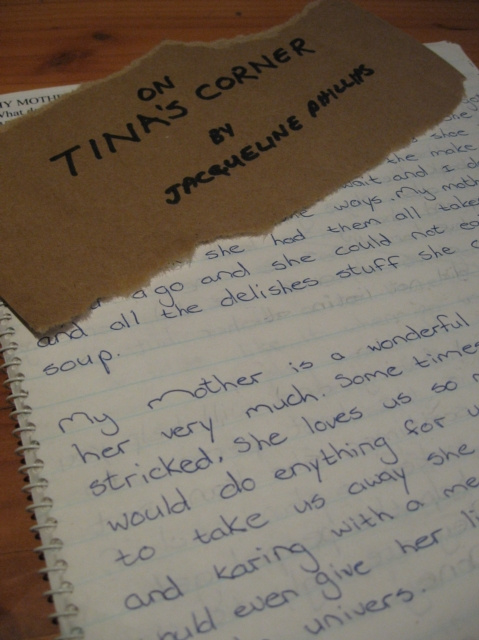 ON
TINA'S CORNER
BY
JACQUELINE PHILLIPS
MY MOTH
What
shoe
the make
wait and I d
ways. My moth
she had them all take
ago and she could not ea
and all the delishes stuff she c
soup.
My mother is a wonderful
her very much. Some times
stricked, she loves us so
would do enything for u
to take us away she
and karing with a me
ould ever give her li
univers.